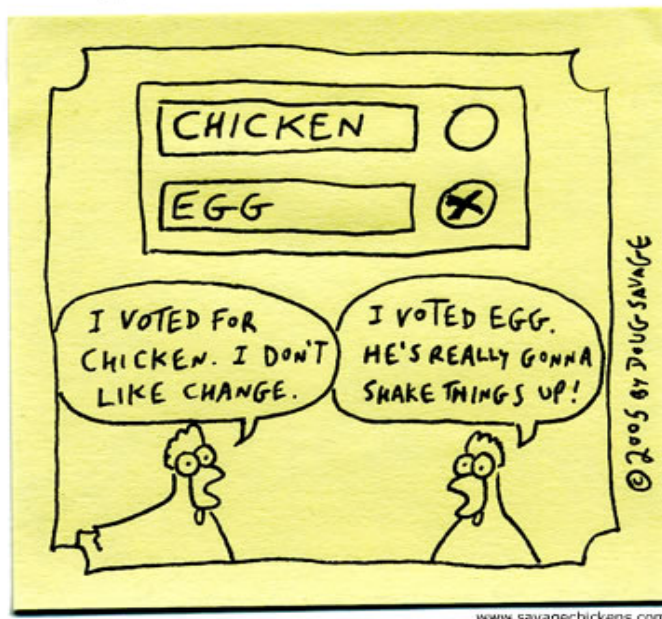 CHICKEN
EGG
I VOTED FOR
CHICKEN. I DON'T
LIKE CHANGE.
I VOTED EGG.
HE'S REALLY GONNA
SHAKE THINGS UP!
©2005 BY DOUG SAVAGE
www.savagechickens.com